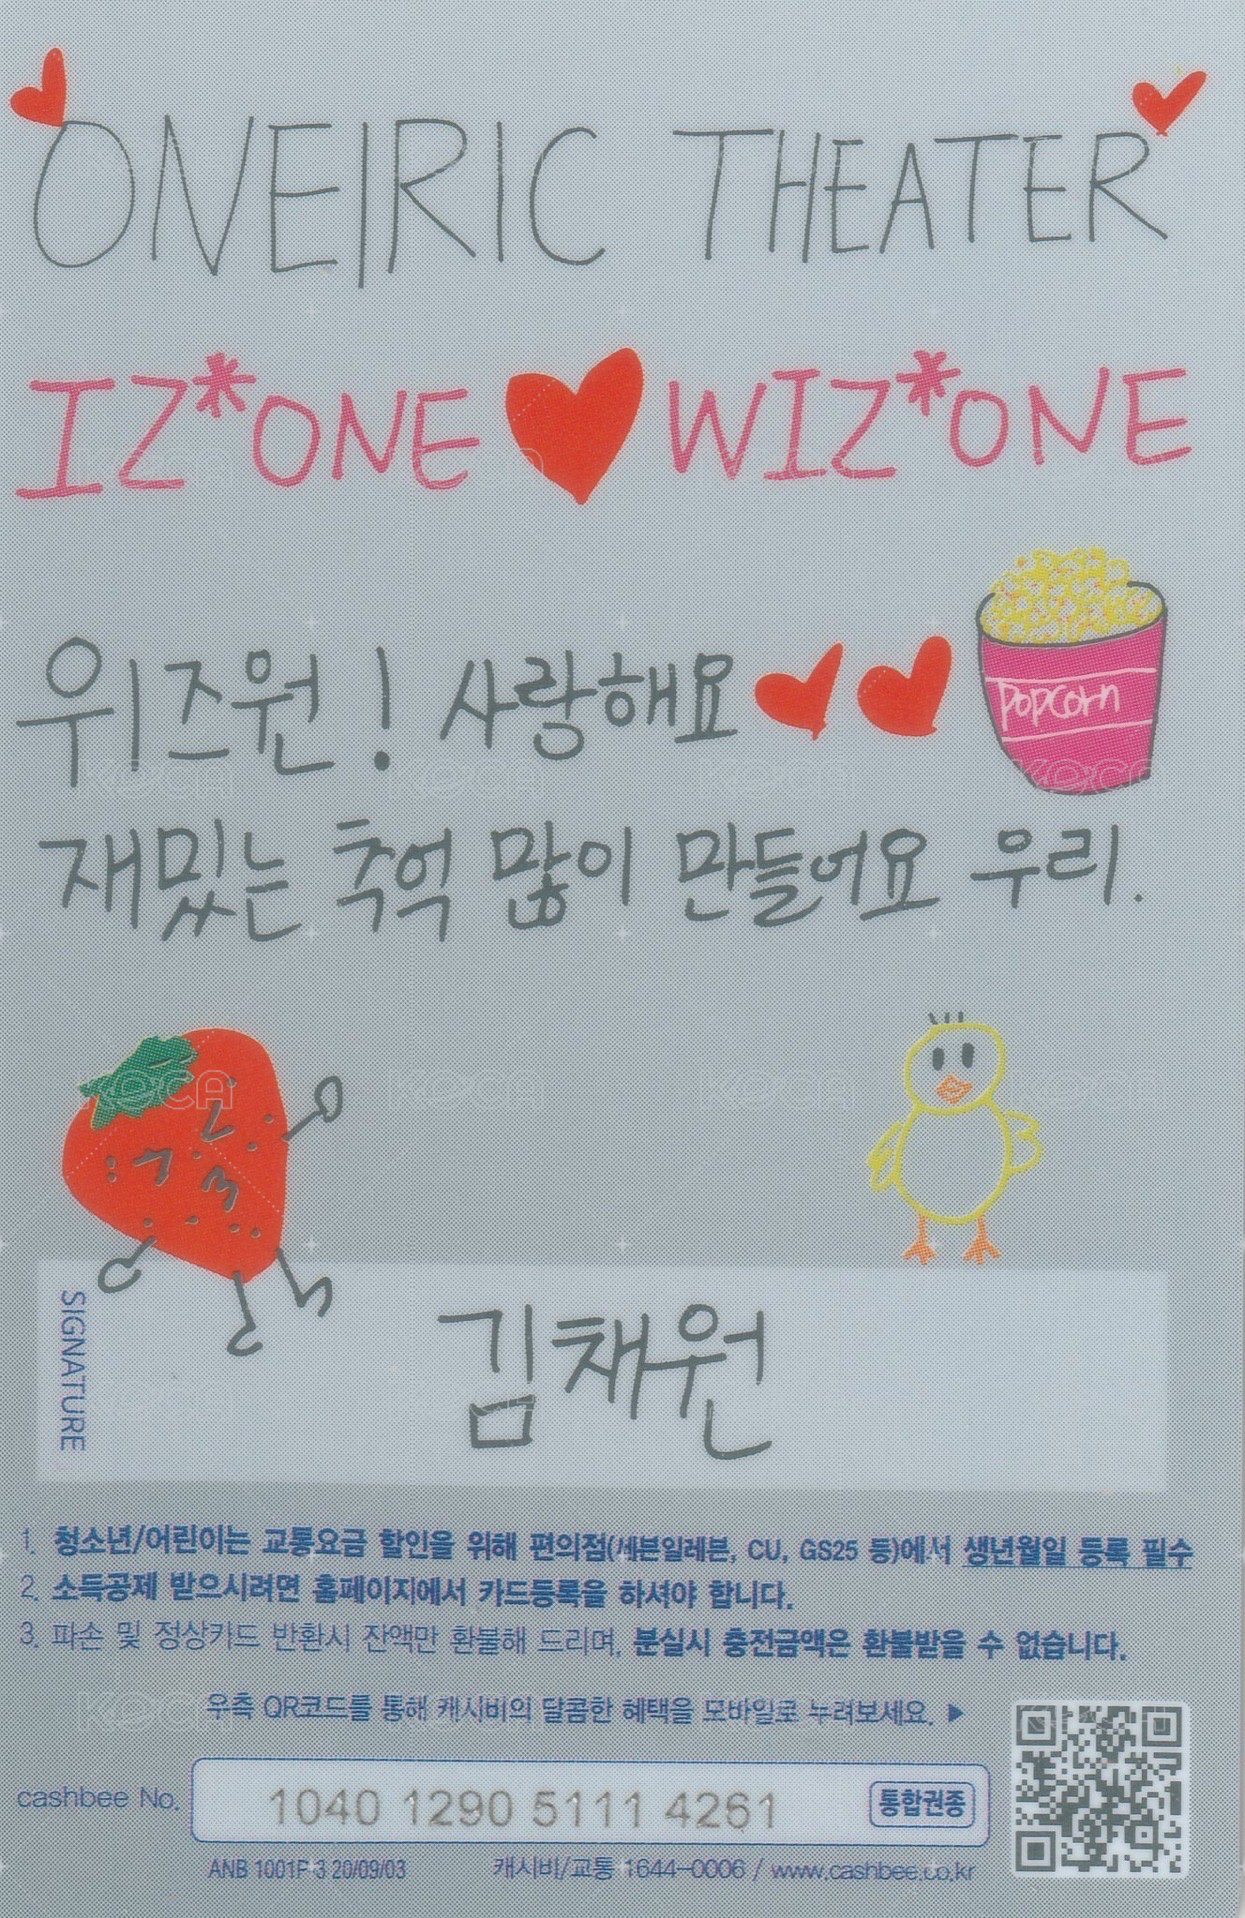 ONEIRIC THEATER
IZ*ONE ♥ WIZ*ONE
위즈원! 사랑해요 ♥♥
popcorn
재밌는 추억 많이 만들어요 우리.
SIGNATURE
김채원
1. 청소년/어린이는 교통요금 할인을 위해 편의점(세븐일레븐, CU, GS25 등)에서 생년월일 등록 필수
2. 소득공제 받으시려면 홈페이지에서 카드등록을 하셔야 합니다.
3. 파손 및 정상카드 반환시 잔액만 환불해 드리며, 분실시 충전금액은 환불받을 수 없습니다.
우측 QR코드를 통해 캐시비의 달콤한 혜택을 모바일로 누려보세요. ▶
cashbee No. 1040 1290 5111 4261 통합권종
ANB 1001P-3 20/09/03 캐시비/교통 1644-0006 / www.cashbee.co.kr
KOCA